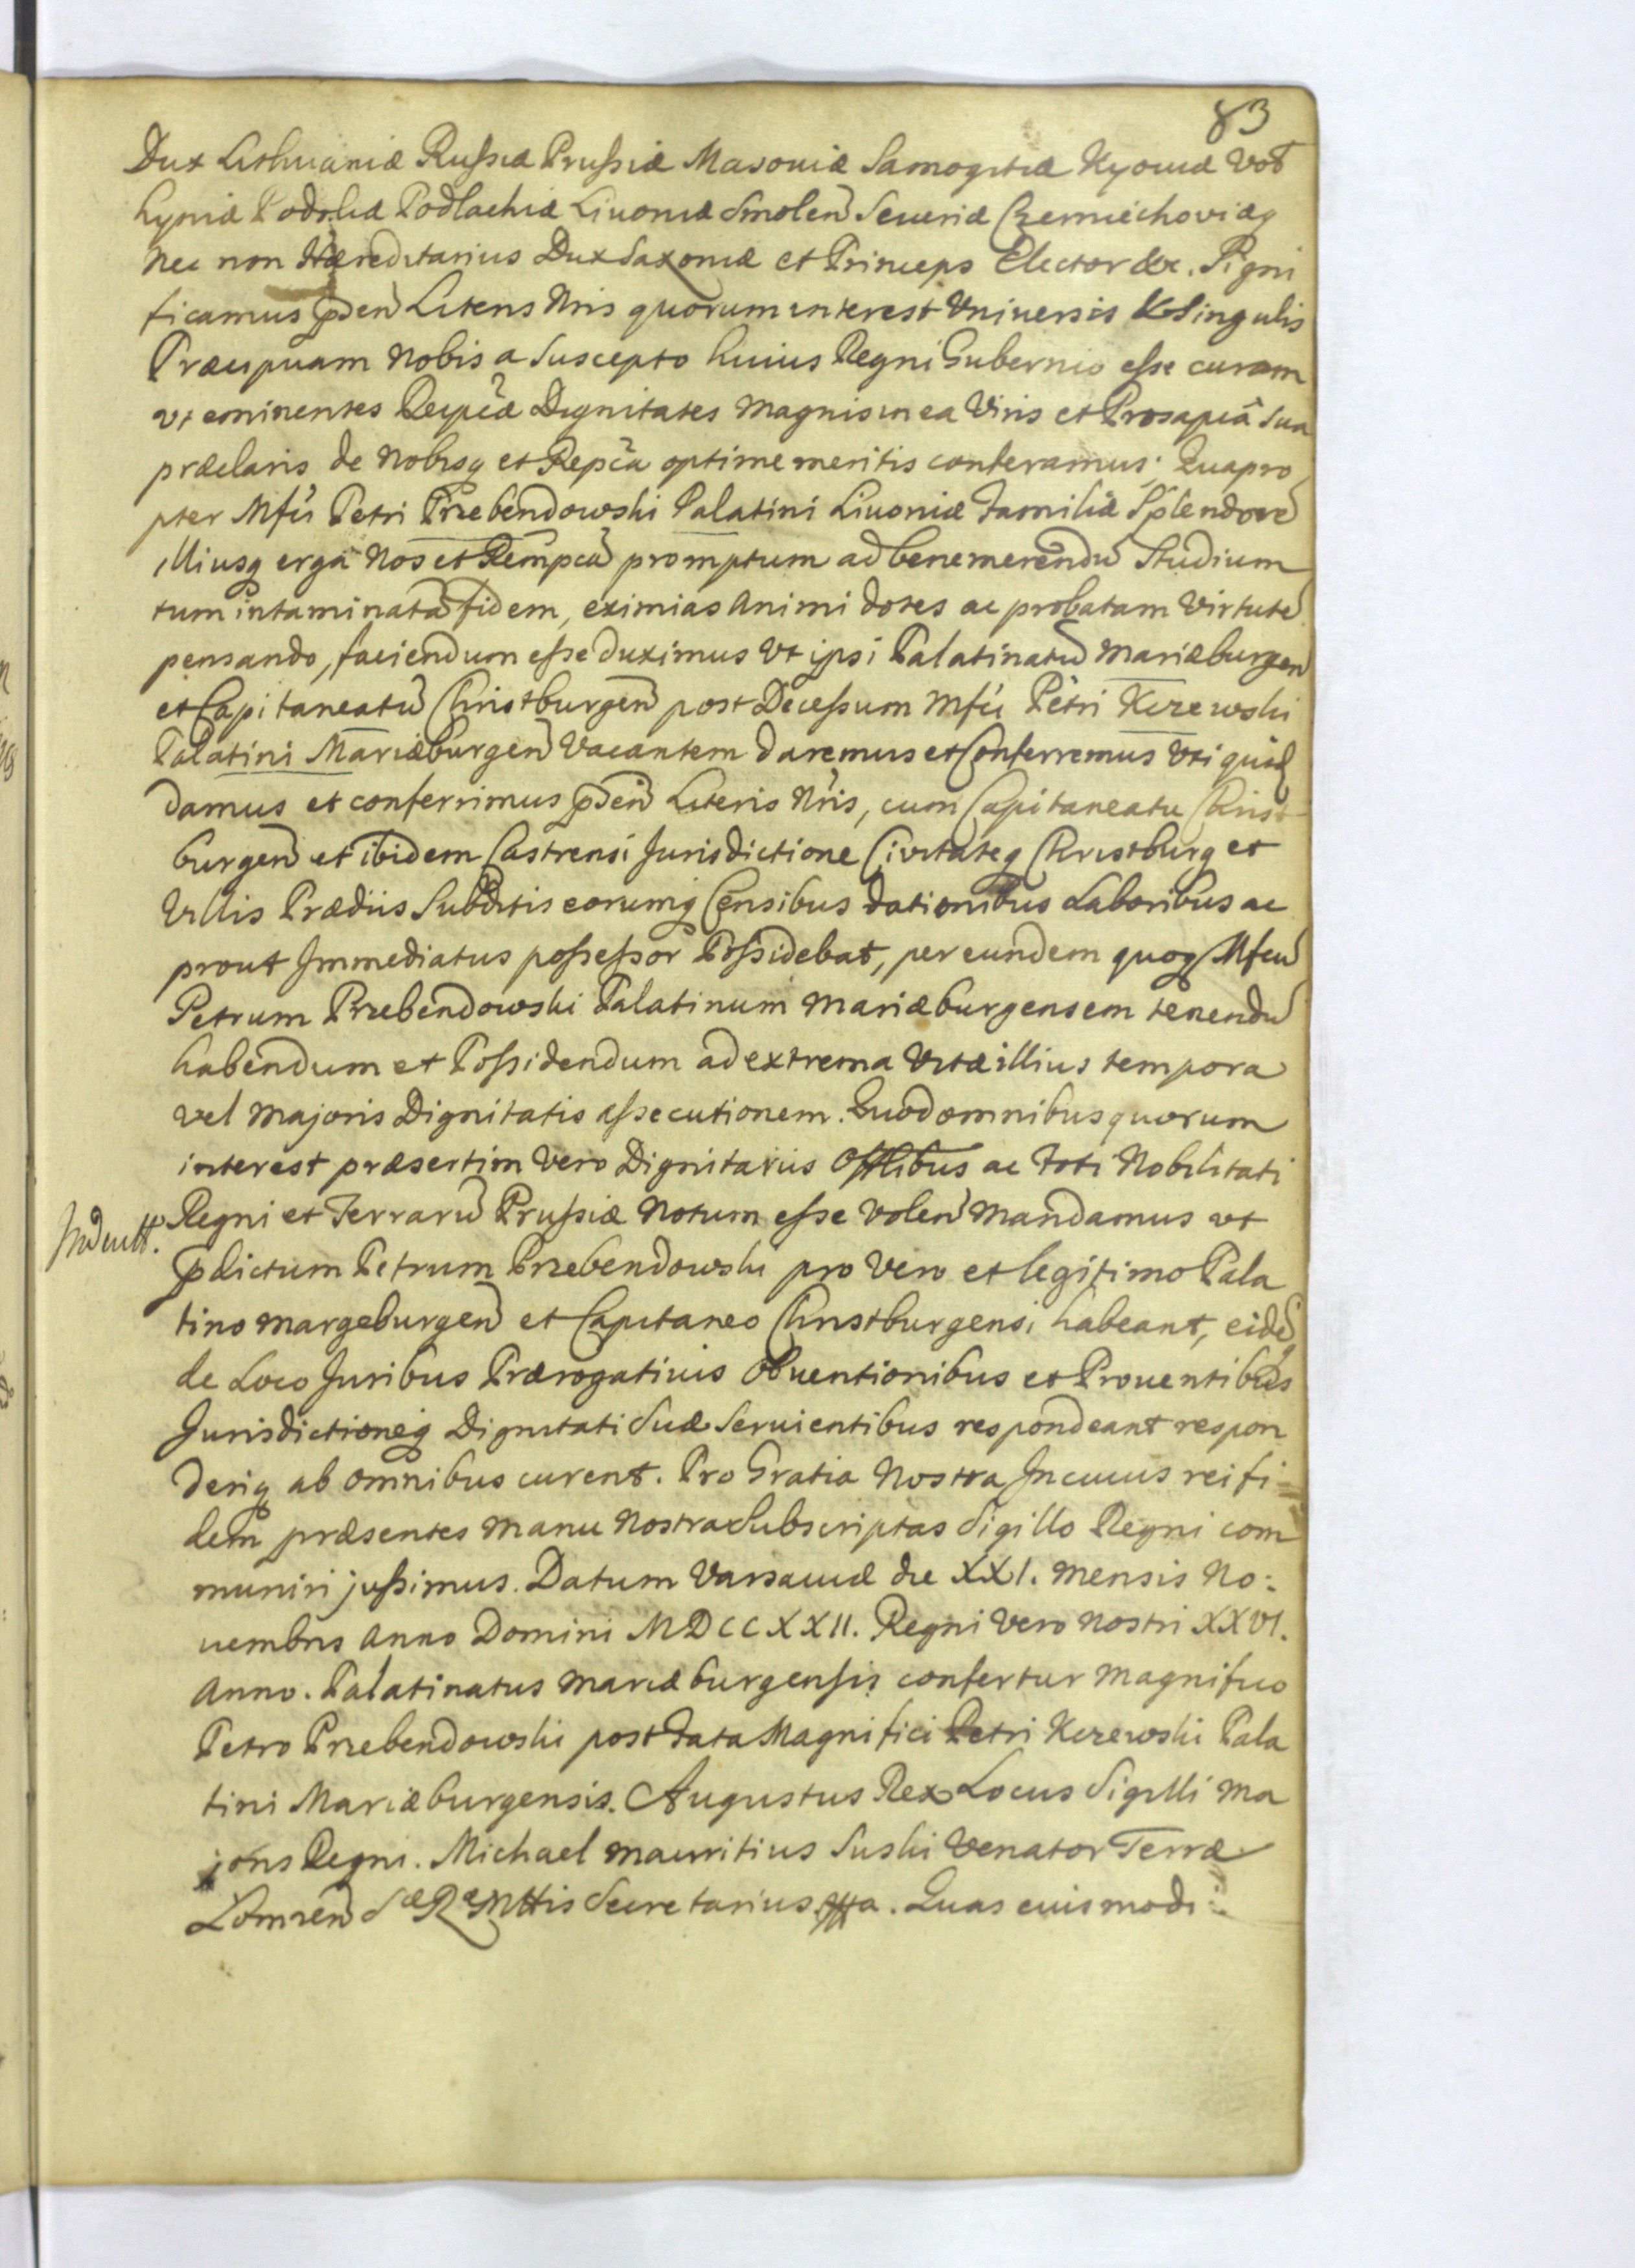 83
Dux Lithuaniæ Russiæ Prussiæ Masoviæ Samogitiæ Kyoviæ Vol
hyniæ Podoliæ Podlachiæ Livoniæ Smolen Severiæ Czerniechoviæq
Nec non Hæreditarius Dux Saxoniæ et Princeps Elector &c. Signi
ficamus pden Literis Nris quorum interest Universis & Singulis
Præcipuam Nobis a Suscepto huius Regni Gubernio esse curam
vt eminentes Reipcæ Dignitates magnis in ea Viris et Prosapiâ Sua
præclaris de Nobisq et Repca optime meritis conferamus; Quapro
pter Mfci Petri Przebendowski Palatini Livoniæ Familiæ Splendore
illiusq erga Nos et Rempcam promptum ad benemerendu Studium
tum intaminatã fidem, eximias Animi dotes ac probatam Virtute
pensando, faciendum esse duximus Vt ipsi Palatinatu Mariæburgen
et Capitaneatu Christburgen post Decessum Mfci Petri Kczewski
Palatini Mariæburgen Vacantem daremus et Conferremus Vti quid
damus et conferrimus pden Literis Nris, cum Capitaneatu Christ
burgen et ibidem Castrensi Jurisdictione Civitateq Christburg et
Villis Prædiis Subditis eorumq Censibus dationibus Laboribus ac
prout Immediatus possessor Possidebat, per eundem quoq Mfcu
Petrum Przebendowski Palatinum Mariæburgensem tenendu
habendum et Possidendum ad extrema Vitæ illius tempora
vel Majoris Dignitatis assecutionem. Quod omnibus quorum
interest præsertim Vero Dignitariis Offlibus ac Toti Nobilitati
Regni et Terraru Prussiæ Notum esse Volen Mandamus vt
pdictum Petrum Przebendowski pro Vero et legitimo Pala
tino Margeburgen et Capitaneo Christburgensi habeant, eide
de Loco Juribus Prærogativis Obventionibus et Proventibus
Jurisdictioneq Dignitati Suæ Servientibus respondeant respon
deriq ab omnibus curent. Pro Gratia Nostra In cuius rei fi=
dem præsentes manu Nostra Subscriptas Sigillo Regni com
muniri jussimus. Datum Varsaviæ die XXI. Mensis No:
vembris Anno Domini MDCCXXII. Regni Vero Nostri XXVI.
Anno. Palatinatus Mariæburgensis confertur Magnifico
Petro Przebendowski post Fata Magnifici Petri Kczewski Pala
tini Mariæburgensis. Augustus Rex Locus Sigilli Ma
joris Regni. Michael Mauritius Suski Venator Terræ
Lomzen Sæ Ræ Mttis Secretarius mppa. Quas eiusmodi